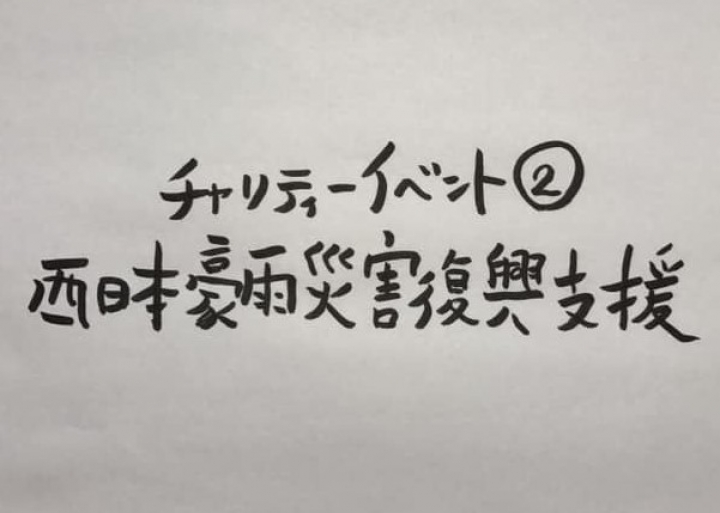 チャリティーイベント②
西日本豪雨災害復興支援